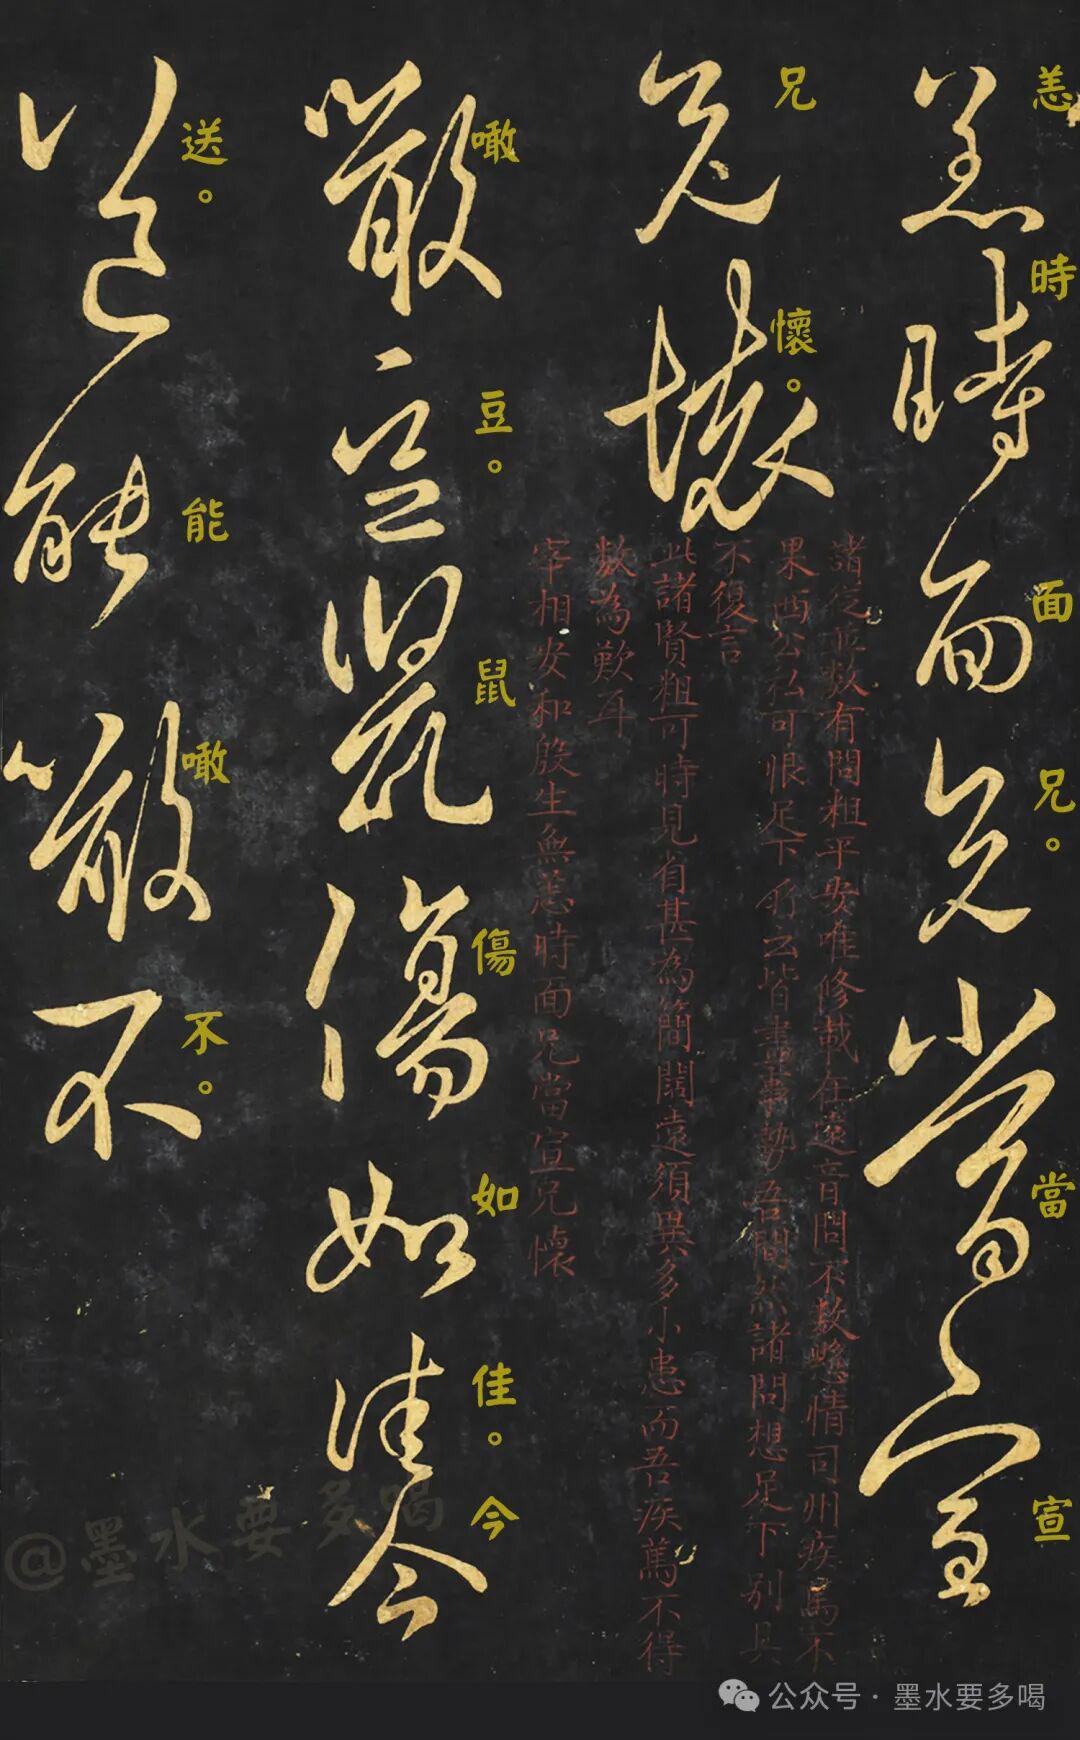 恙時面兄當宣
恙時面兄。當宣
兄懷
兄懷。
諸從並数有問粗平安唯修載在遠音問不数懸情司州疾篤不
果西公私可恨足下所云皆盡事勢吾間然諸問想足下別具
不復言
此諸賢粗可時見自甚為簡闊遠須異多小患而吾疾篤不得
数為歎耳
宰相安和殷生無恙時面兄當宣兄懷
噉豆鼠傷如佳今
噉豆。鼠傷如佳。今
送能噉不
送。能噉不。
@墨水要多喝
公众号·墨水要多喝